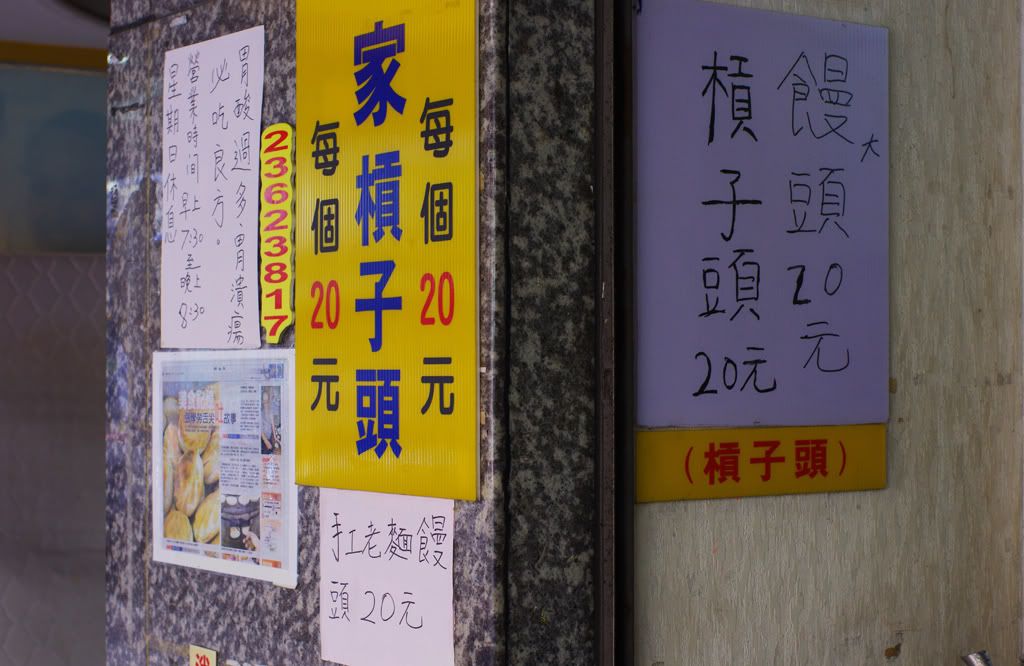 胃酸過多、胃潰瘍
必吃良方。
營業時间 早上7:30至晚上8:30
星期日休息
23623817
每個20元
家槓子頭
每個20元
手工老麵饅
頭20元
大
饅頭20元
槓子頭20元
(槓子頭)
故事